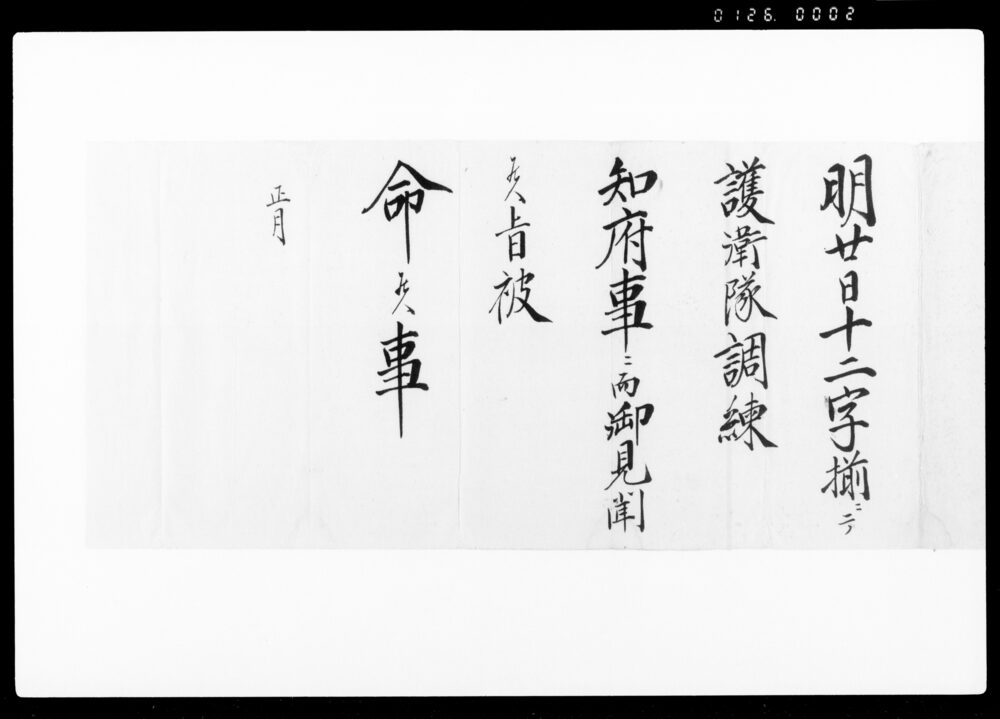 0126. 0002
明廿日十二字揃ニテ
護衛隊調練
知府事ニ而御見聞
候旨被
命候事
正月